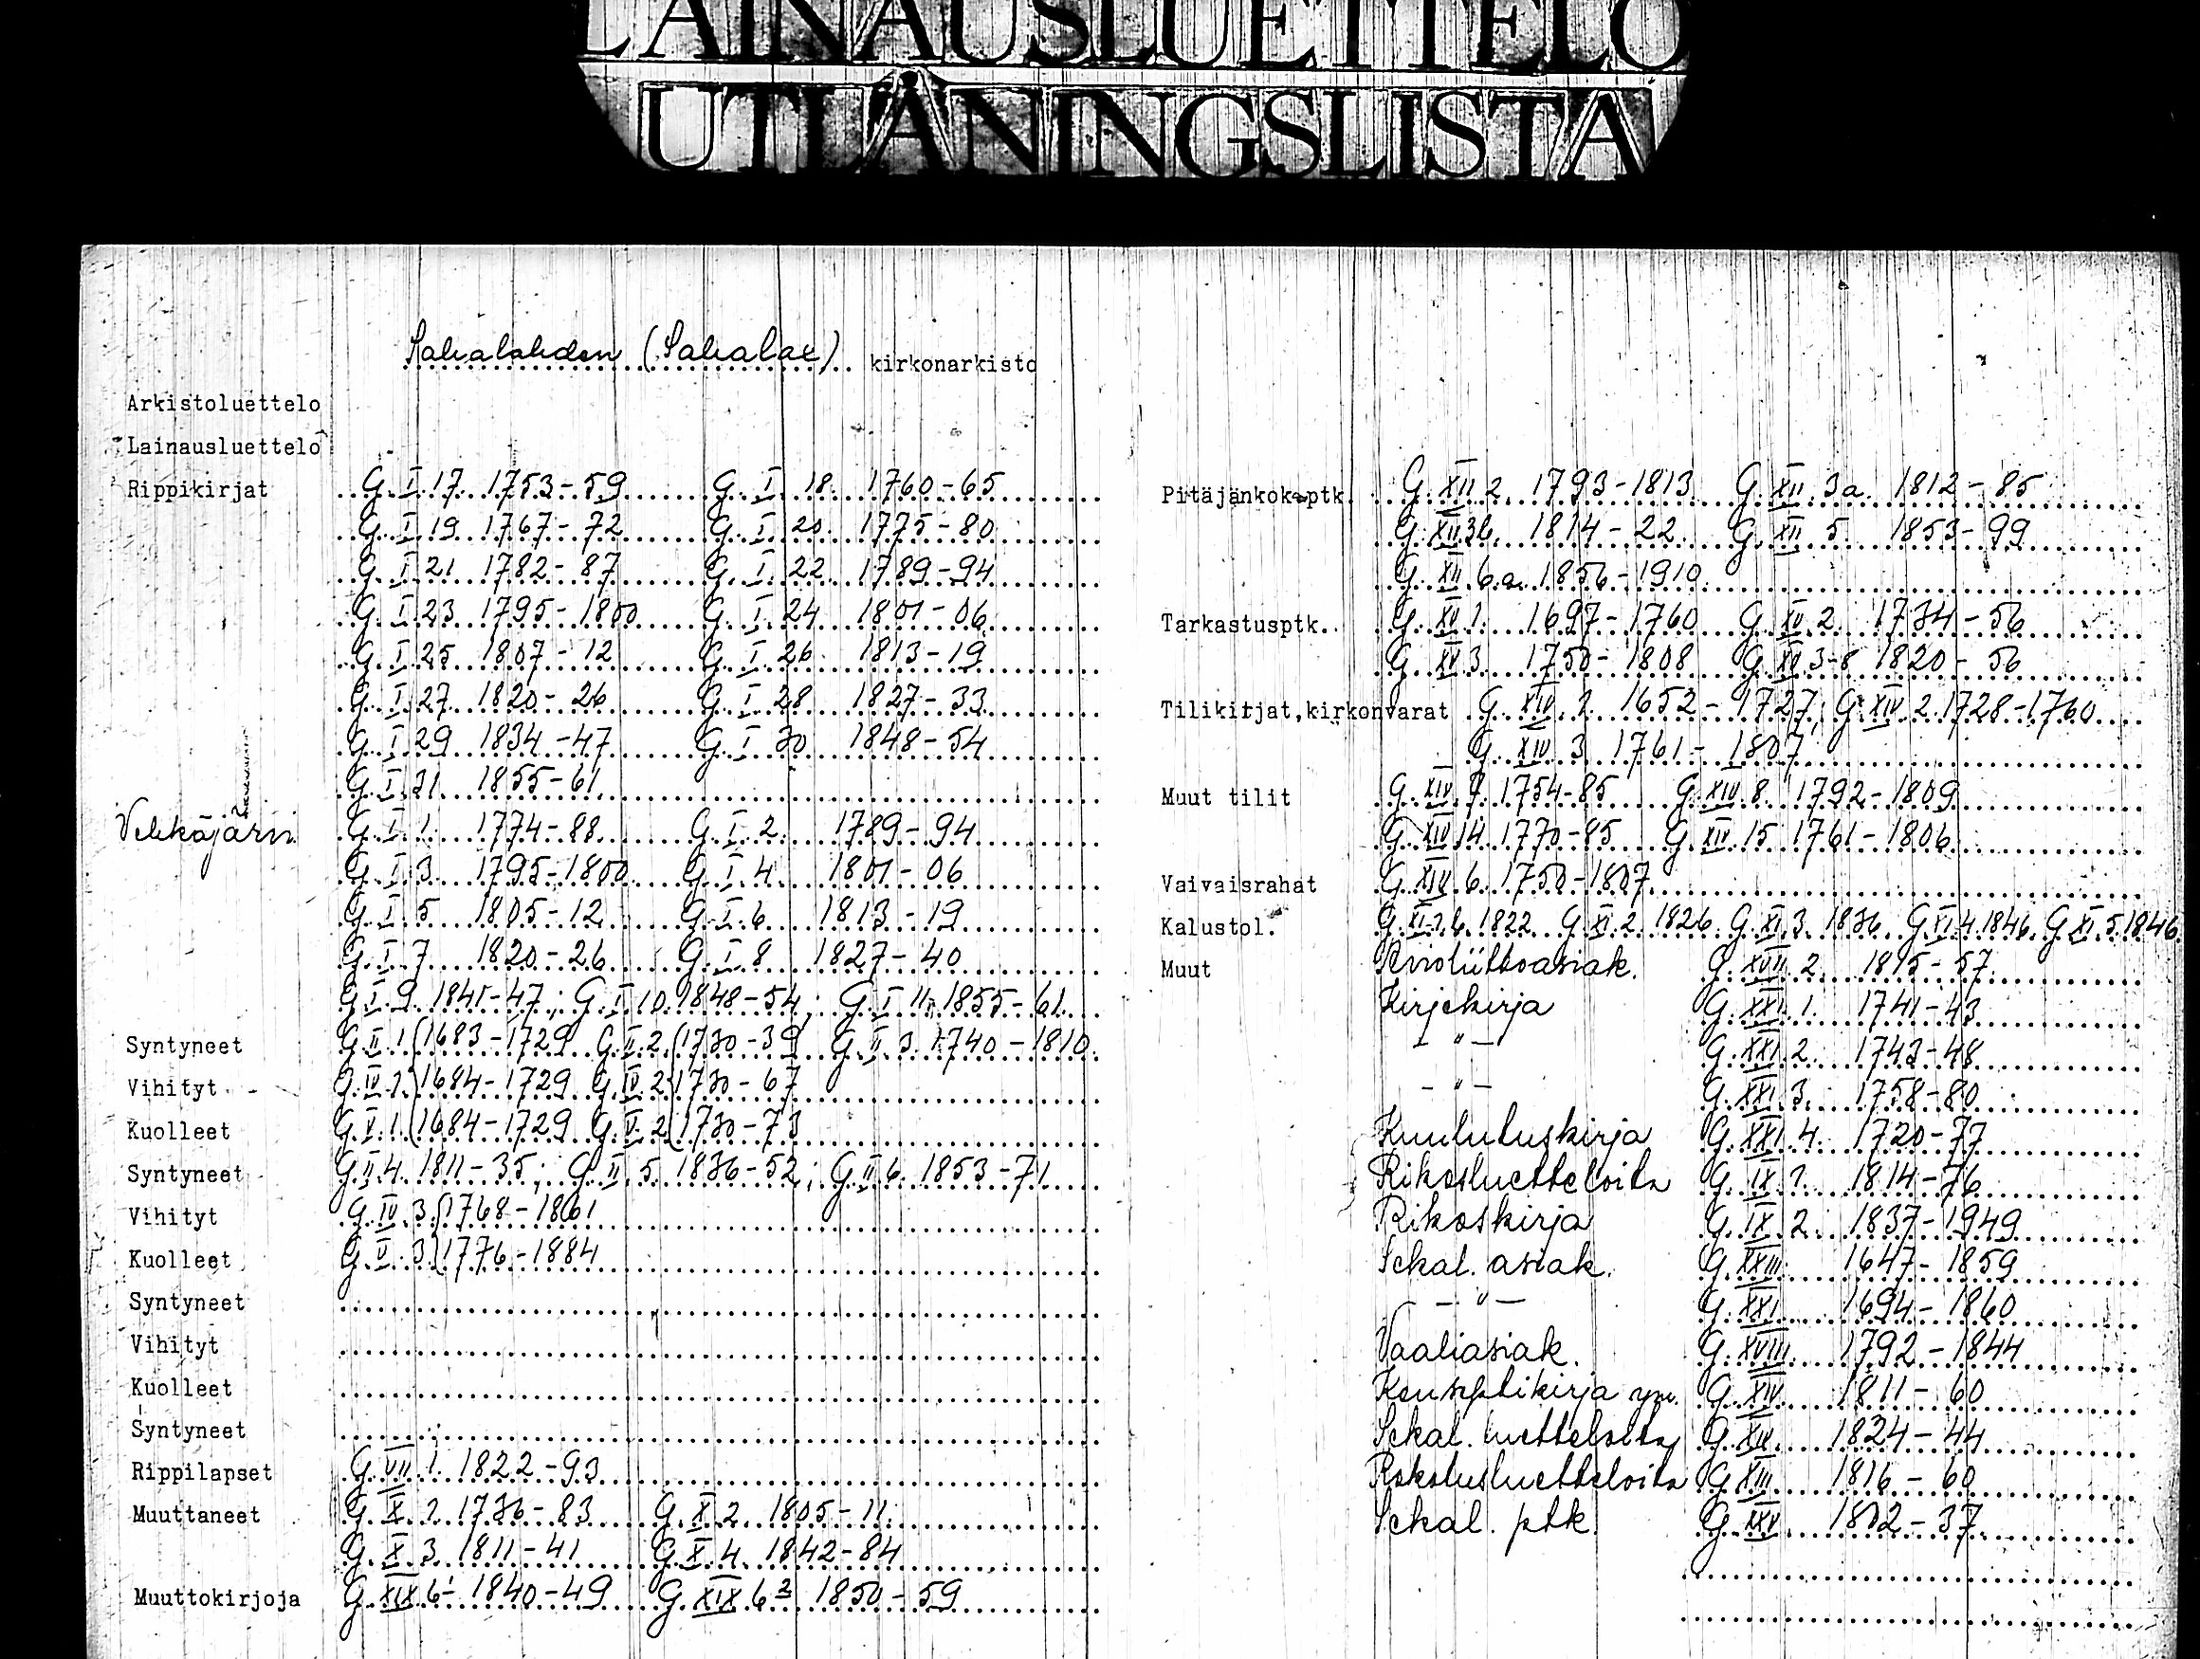 LAINAUSLUETTELO
UTLÅNINGSLISTA
Sahalahden (Sahalax) kirkonarkisto
Arkistoluettelo
Lainausluettelo
Rippikirjat G I 17 1753-59 G I 18 1760-65
G I 19 1767-72 G I 20 1775-80
G I 21 1782-87 G I 22 1789-94
G I 23 1795-1800 G I 24 1801-06
G I 25 1807-12 G I 26 1813-19
G I 27 1820-26 G I 28 1827-33
G I 29 1834-47 G I 30 1848-54
G I 31 1855-61
G I 1 1774-88 G I 2 1789-94
G I 3 1795-1800 G I 4 1801-06
G I 5 1805-12 G I 6 1813-19
G I 7 1820-26 G I 8 1827-40
G I 9 1841-47; G I 10 1848-54; G I 11 1855-61
Syntyneet G II 1 (1683-1729 G II 2 (1730-39 G II 3 1740-1810
Vihityt G IV 1 1684-1729 G IV 2 1730-67
Kuolleet G V 1 (1684-1729 G V 2 1730-73
Syntyneet G II 4 1811-35; G II 5 1836-52; G II 6 1853-71
Vihityt G IV 3 1768-1861
Kuolleet G V 3 1776-1884
Syntyneet
Vihityt
Kuolleet
Syntyneet
Rippilapset G VII 1 1822-93
Muuttaneet G X 1 1736-83 G X 2 1805-11
G X 3 1811-41 G X 4 1842-84
Muuttokirjoja G XIX 6¹ 1840-49 G XIX 6² 1850-59
Pitäjänkok.ptk. G XII 2 1793-1813 G XII 3a 1812-85
G XII 3b 1814-22 G XII 5 1853-99
G XII 6a 1856-1910
Tarkastusptk. G XV 1 1697-1760 G XV 2 1734-56
G XV 3 1750-1808 G XV 3-8 1820-56
Tilikirjat, kirkonvarat G XIV 1 1652-1727; G XIV 2 1728-1760
G XIV 3 1761-1807
Muut tilit G XIV 7 1754-85 G XIV 8 1792-1809
G XIV 14 1770-85 G XIV 15 1761-1806
Vaivaisrahat G XIV 6 1750-1807
Kalustol. G XI 1b 1822 G XI 2 1826 G XI 3 1836 G XI 4 1846 G XI 5 1846
Muut Avioliittoasiak. G XVII 2 1815-57
Kirjekirja G XXI 1 1741-43
-"- G XXI 2 1743-48
-"- G XXI 3 1758-80
Kuulutuskirja G XXI 4 1720-77
Rikosluetteloita G IX 1 1814-76
Rikoskirja G IX 2 1837-1949
Sekal. asiak. G XXIII 1647-1859
-"- G XXI 1694-1860
Vaaliasiak. G XVIII 1792-1844
Konseptikirja ym. G XIV 1811-60
Sekal. luetteloita G XV 1824-44
Rokotusluetteloita G XIII 1816-60
Sekal. ptk. 1802-37